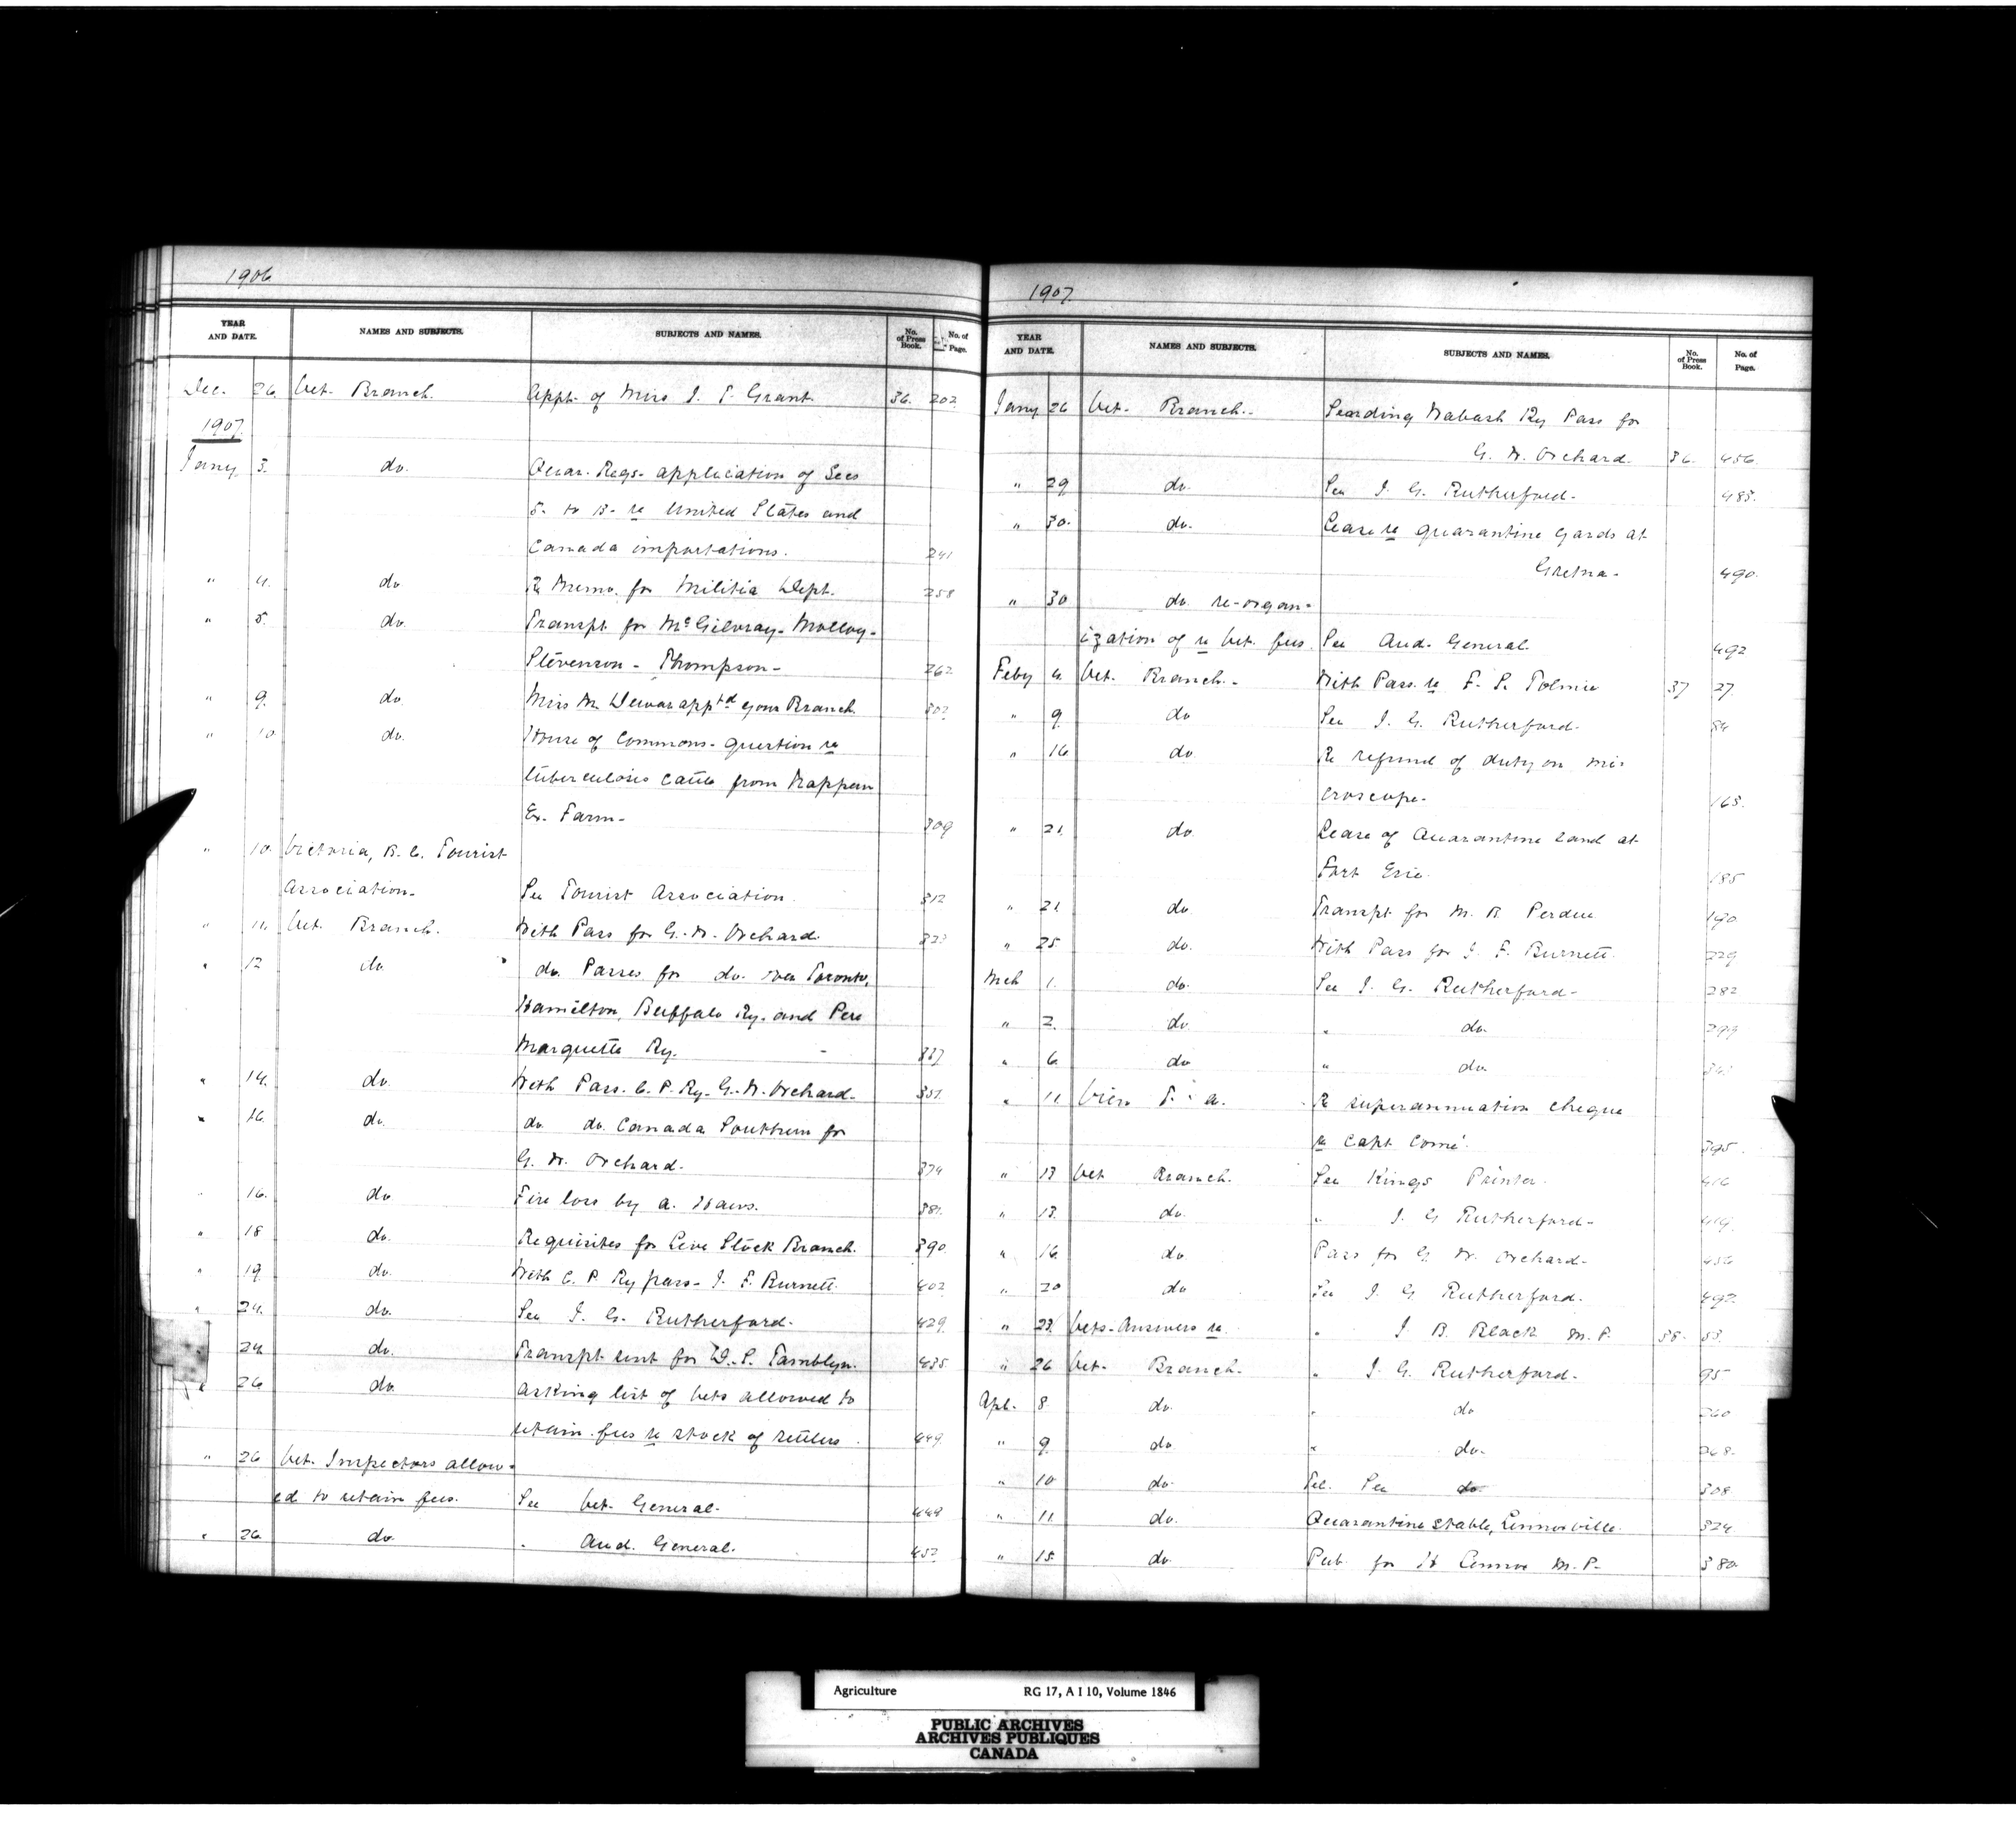 1906
YEAR AND DATE. NAMES AND SUBJECTS. SUBJECTS AND NAMES. No. of Press Book. No. of Page.
Dec. 26 Vet. Branch. Appt. of Miss J. T. Grant. 36. 202
1907.
Jany. 3. do. Quar. Regs. application of Secs
5. to 13. re United States and
Canada importations. 241
" 4. do Re Memo. for Militia Dept. 258
" 5. do. Transpt. for McGilvray - Molloy -
Stevenson - Thompson - 262
" 9. do. Miss M. Dewar apptd your Branch 302
" 10. do. House of Commons - question re
tuberculosis cattle from Nappan
Ex. Farm - 309
" 10. Victoria, B. C. Tourist
Association - See Tourist Association. 312
" 11. Vet. Branch. With Pass for G. W. Orchard. 323
" 12 do. do. Passes for do. over Toronto,
Hamilton, Buffalo Ry. and Pere
Marquette Ry. 337
" 14. do. With Pass. C. P. Ry. G. W. Orchard. 351.
" 16. do. do. do. Canada Southern for
G. W. Orchard. 374
" 16. do. Fire loss by A. Haws. 381.
" 18 do. Requisites for Live Stock Branch. 390.
" 19. do. With C. P. Ry pass - J. F. Burnett. 402
" 24. do. See J. G. Rutherford. 429.
24. do. Transpt sent for W. S. Tamblyn. 435.
" 26 do. Asking list of Vets allowed to
retain fees re stock of settlers. 449.
" 26 Vet. Inspectors allow-
ed to retain fees. See Vet. General. 449
" 26. do. " Aud. General. 452
1907.
YEAR AND DATE. NAMES AND SUBJECTS. SUBJECTS AND NAMES. No. of Press Book. No. of Page.
Jany. 26 Vet. Branch. Sending Wabash Ry Pass for
G. W. Orchard. 36. 456.
" 29 do. See J. G. Rutherford. 485.
" 30. do. Lease re quarantine yards at
Gretna. 490.
" 30 do. re-organ-
ization of re Vet. fees. See Aud. General. 492
Feby 4. Vet. Branch. With Pass. re S. F. Tolmie 37 27.
" 9. do See J. G. Rutherford. 84
" 16. do Re refund of duty on mi-
croscope. 163.
" 21. do. Lease of Quarantine land at
Fort Erie. 185
" 21. do. Transpt for M. B. Perdue 190.
" 25 do. With Pass for J. F. Burnett. 229
Mch 1. do. See J. G. Rutherford - 282
" 2. do. " do. 299
" 6. do " do. 343
" 11. Vien T. A. Re superannuation cheque
re Capt Corné. 395.
" 13 Vet Branch. See Kings Printer. 416
" 13. do. " J. G. Rutherford - 419.
" 16. do. Pass for G. W. Orchard - 456
" 20 do See J. G. Rutherford. 492.
" 23. Vets - Answers re " J. B. Black M. P. 38. 53.
" 26 Vet. Branch. " J. G. Rutherford. 95
Apl. 8. do. " do 260
" 9. do " do. 268.
" 10 do. Tel. See do. 308
" 11. do. Quarantine stable, Lennoxville. 324
" 15. do. Pub. for H Lennox M. P. 380.
Agriculture RG 17, A I 10, Volume 1846
PUBLIC ARCHIVES
ARCHIVES PUBLIQUES
CANADA